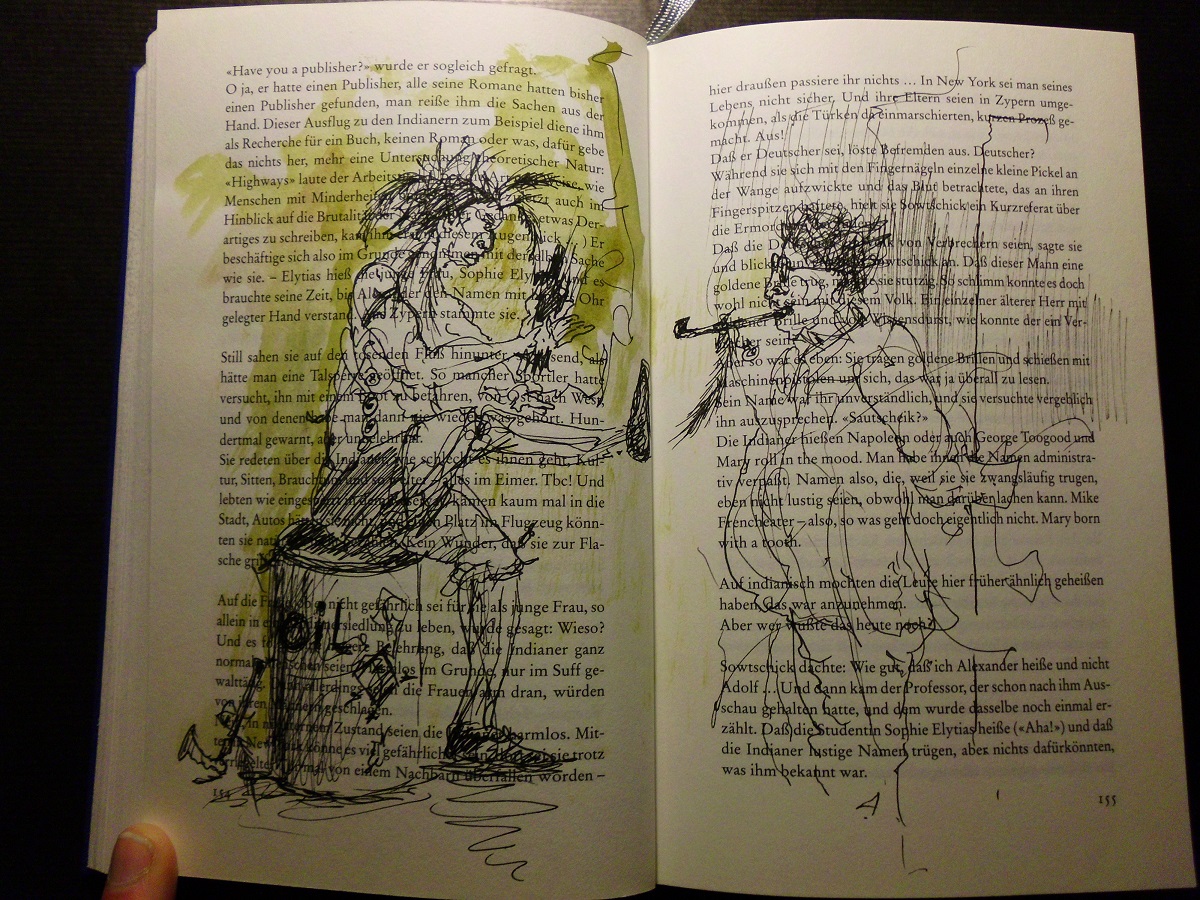 «Have you a publisher?» wurde er sogleich gefragt.
O ja, er hatte einen Publisher, alle seine Romane hatten bisher
einen Publisher gefunden, man reiße ihm die Sachen aus der
Hand. Dieser Ausflug zu den Indianern zum Beispiel diene ihm
als Recherche für ein Buch, keinen Roman oder was, dafür gebe
das nichts her, mehr eine Untersuchung theoretischer Natur:
«Highways» laute der
Menschen mit Minderheiten auch im
Hinblick auf die Brutalität etwas Der-
artiges zu schreiben, diesem Augenblick Er
beschäftige sich also im Grunde genommen mit derselben Sache
wie sie. – Elytias hieß die junge Frau, Sophie Elytias und es
brauchte seine Zeit, bis den Namen mit Ohr
gelegter Hand verstand. Zypern stammte sie.
Still sahen sie auf den tosenden Fluß hinunter, tosend, als
hätte man eine Talsperre geöffnet. So mancher Sportler hatte
versucht, ihn mit einem Boot zu befahren, von Ost nach West,
und von denen habe man dann nie wieder was gehört. Hun-
dertmal gewarnt, aber unbelehrbar.
Sie redeten über die Indianer, wie schlecht es ihnen geht, Kul-
tur, Sitten, Brauchtum und so weiter – alles im Eimer. Tbc! Und
lebten wie eingesperrt in dem Reservat, kamen kaum mal in die
Stadt, Autos hätten sie nicht, Platz im Flugzeug könn-
ten sie Kein Wunder, daß sie zur Fla-
sche
Auf die Frage, ob es nicht gefährlich sei für sie als junge Frau, so
allein in zu leben, wurde gesagt: Wieso?
Und es Belehrung, daß die Indianer ganz
im Grunde, nur im Suff ge-
walttätig. die Frauen arm dran, würden
von geschlagen.
in Zustand seien die harmlos. Mit-
ten in New York könne es viel gefährlicher sie trotz
von einem Nachbarn überfallen worden –
154
OIL
hier draußen passiere ihr nichts … In New York sei man seines
Lebens nicht sicher. Und ihre Eltern seien in Zypern umge-
kommen, als die Türken da einmarschierten, kurzen Prozeß ge-
macht. Aus!
Daß er Deutscher sei, löste Befremden aus. Deutscher?
Während sie sich mit den Fingernägeln einzelne kleine Pickel an
der Wange aufzwickte und das Blut betrachtete, das an ihren
Fingerspitzen haftete, hielt sie Sowtschick ein Kurzreferat über
die Ermordung
Daß die Deutschen Volk von Verbrechern seien, sagte sie
und blickte Sowtschick an. Daß dieser Mann eine
goldene Brille trug, machte sie stutzig. So schlimm konnte es doch
wohl nicht sein mit diesem Volk. Ein einzelner älterer Herr mit
goldener Brille und voll Wissensdurst, wie konnte der ein Ver-
brecher sein?
Aber so war es eben: Sie tragen goldene Brillen und schießen mit
Maschinenpistolen um sich, das war ja überall zu lesen.
Sein Name war ihr unverständlich, und sie versuchte vergeblich
ihn auszusprechen. «Sautscheik?»
Die Indianer hießen Napoleon oder auch George Toogood und
Mary roll in the mood. Man habe ihnen die Namen administra-
tiv verpaßt, Namen also, die, weil sie sie zwangsläufig trugen,
eben nicht lustig seien, obwohl man darüber lachen kann. Mike
Frencheater – also, so was geht doch eigentlich nicht. Mary born
with a tooth.
Auf indianisch mochten die Leute hier früher ähnlich geheißen
haben, das war anzunehmen.
Aber wer wußte das heute noch?
Sowtschick dachte: Wie gut, daß ich Alexander heiße und nicht
Adolf … Und dann kam der Professor, der schon nach ihm Aus-
schau gehalten hatte, und dem wurde dasselbe noch einmal er-
zählt. Daß die Studentin Sophie Elytias heiße («Aha!») und daß
die Indianer lustige Namen trügen, aber nichts dafürkönnten,
was ihm bekannt war.
155